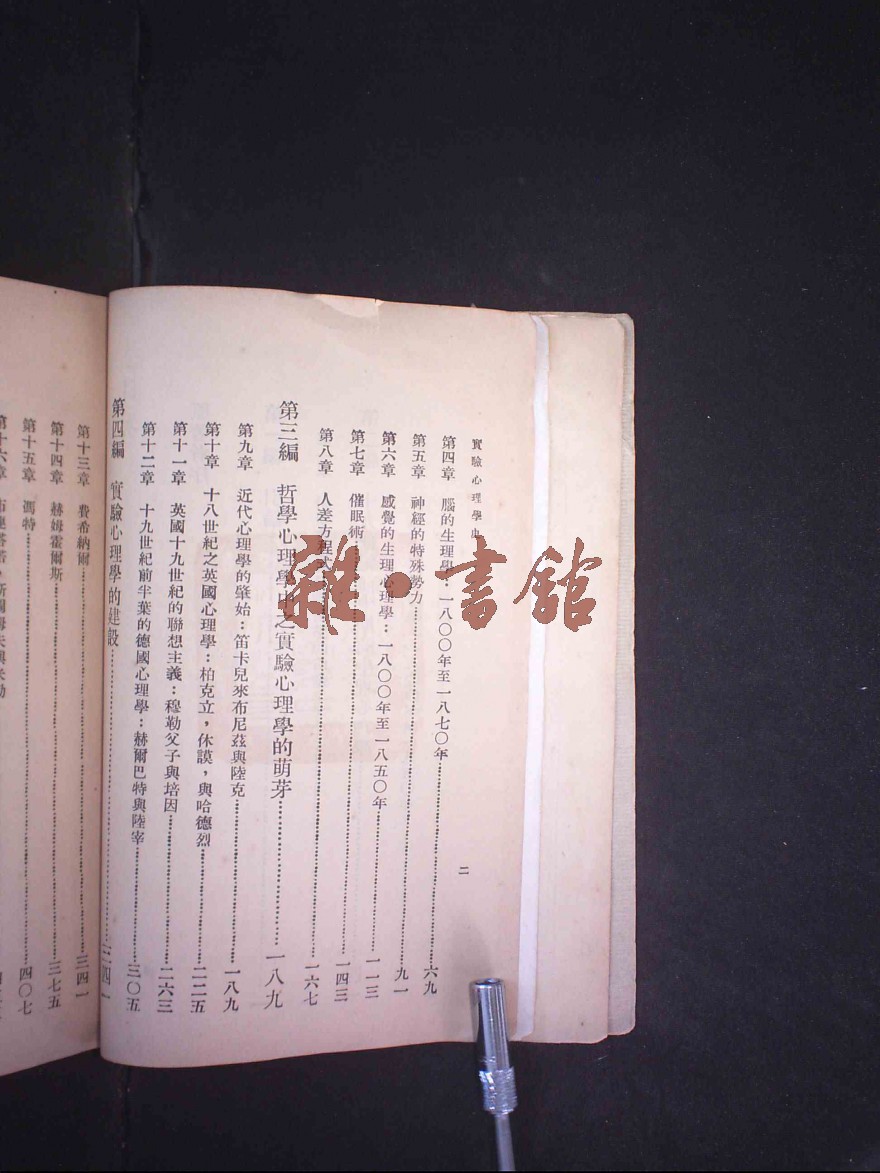 實驗心理學史
第四章 腦的生理學:一八〇〇年至一八七〇年……六九
第五章 神經的特殊勢力……九一
第六章 感覺的生理心理學:一八〇〇年至一八五〇年……一一三
第七章 催眠術……一四三
第八章 人差方程式……一六七
第三編 哲學心理學中之實驗心理學的萌芽……一八九
第九章 近代心理學的肇始:笛卡兒來布尼茲與陸克……一八九
第十章 十八世紀之英國心理學:柏克立,休謨,與哈德烈……二二五
第十一章 英國十九世紀的聯想主義:穆勒父子與培因……二六三
第十二章 十九世紀前半葉的德國心理學:赫爾巴特與陸宰……三〇五
第四編 實驗心理學的建設……三四一
二
第十三章 費希納爾……三四一
第十四章 赫姆霍爾斯……三七五
第十五章 馮特……四〇七
第十六章
雜·書館